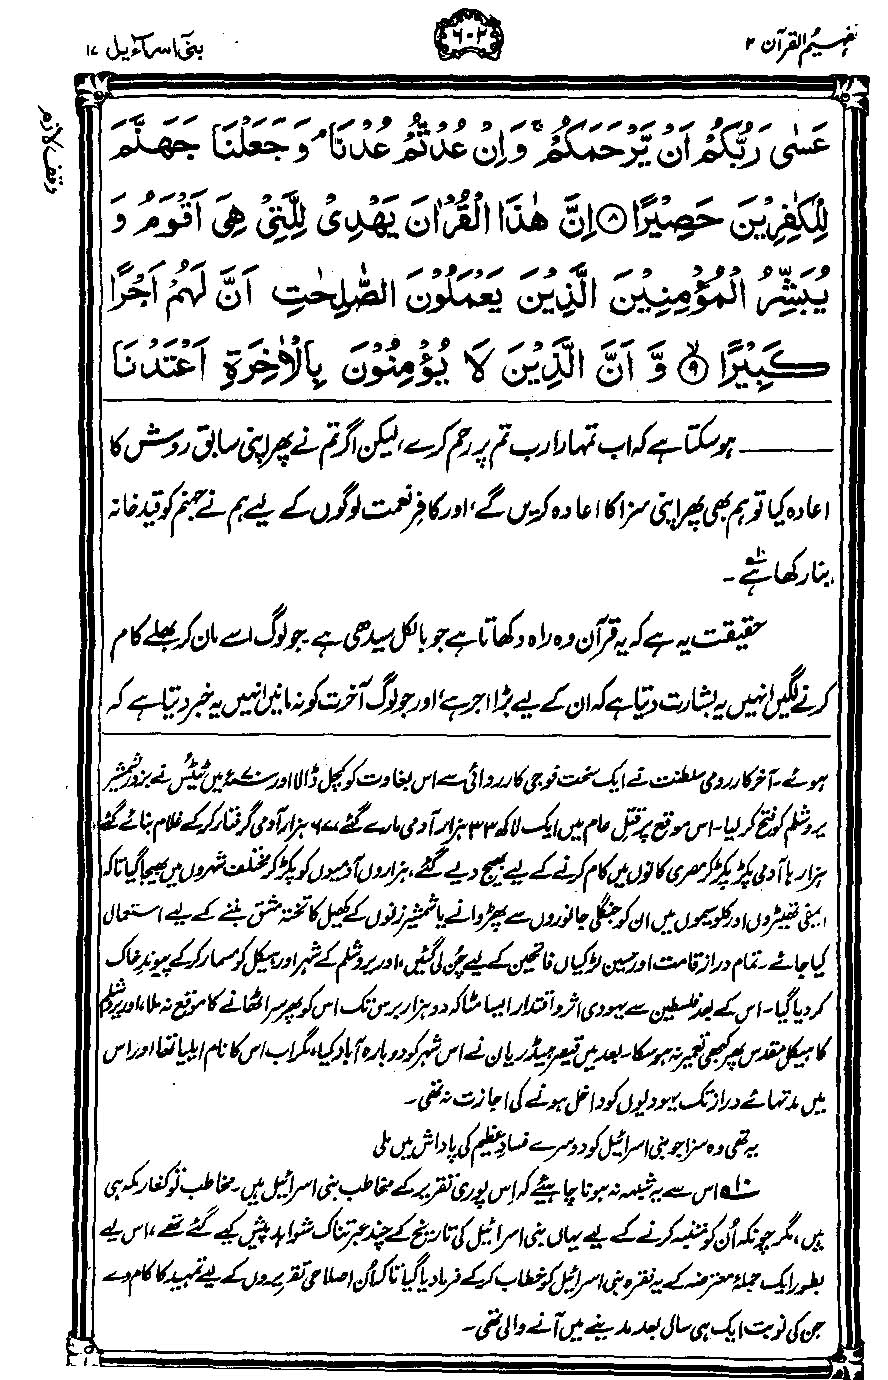 تفہیم القرآن ۲
۶۰۲
بنی اسرآءیل ۱۷
وقف لازم
عَسٰى رَبُّكُمْ اَنْ يَّرْحَمَكُمْ ۚ وَاِنْ عُدْتُّمْ عُدْنَا ۘ وَجَعَلْنَا جَهَنَّمَ
لِلْكٰفِرِيْنَ حَصِيْرًا ﴿۸﴾ اِنَّ هٰذَا الْقُرْاٰنَ يَهْدِىْ لِلَّتِىْ هِىَ اَقْوَمُ وَ
يُبَشِّرُ الْمُؤْمِنِيْنَ الَّذِيْنَ يَعْمَلُوْنَ الصّٰلِحٰتِ اَنَّ لَهُمْ اَجْرًا
كَبِيْرًا ۙ﴿۹﴾ وَّ اَنَّ الَّذِيْنَ لَا يُؤْمِنُوْنَ بِالْاٰخِرَةِ اَعْتَدْنَا
ہو سکتا ہے کہ اب تمہارا رب تم پر رحم کرے، لیکن اگر تم نے پھر اپنی سابق روش کا
اعادہ کیا تو ہم بھی پھر اپنی سزا کا اعادہ کریں گے، اور کافر نعمت لوگوں کے لیے ہم نے جہنم کو قید خانہ
بنا رکھا ہے۱۰۔
حقیقت یہ ہے کہ یہ قرآن وہ راہ دکھاتا ہے جو بالکل سیدھی ہے۔ جو لوگ اسے مان کر بھلے کام
کرنے لگیں انہیں یہ بشارت دیتا ہے کہ ان کے لیے بڑا اجر ہے، اور جو لوگ آخرت کو نہ مانیں انہیں یہ خبر دیتا ہے کہ
ہوئے۔ آخرکار رومی سلطنت نے ایک سخت فوجی کارروائی سے اس بغاوت کو کچل ڈالا اور ۷۰ء میں ٹیٹس نے بزور شمشیر
یروشلم کو فتح کر لیا۔ اس موقع پر قتل عام میں ایک لاکھ ۳۳ ہزار آدمی مارے گئے، ۶۷ ہزار آدمی گرفتار کرکے غلام بنائے گئے
ہزارہا آدمی پکڑ پکڑ کر مصری کانوں میں کام کرنے کے لیے بھیج دیے گئے، ہزاروں آدمیوں کو پکڑ کر مختلف شہروں میں بھیجا گیا تاکہ
ایمفی تھیئٹروں اور کلوسیموں میں ان کو جنگلی جانوروں سے پھڑوانے یا شمشیر زنوں کے کھیل کا تختہ مشق بننے کے لیے استعمال
کیا جائے۔ تمام دراز قامت اور حسین لڑکیاں فاتحین کے لیے چُن لی گئیں، اور یروشلم کے شہر اور ہیکل کو مسمار کرکے پیوند خاک
کر دیا گیا۔ اس کے بعد فلسطین سے یہودی اثر و اقتدار ایسا مٹا کہ دو ہزار برس تک اس کو پھر سر اٹھانے کا موقع نہ ملا، اور یروشلم
کا ہیکل مقدس پھر کبھی تعمیر نہ ہو سکا۔ بعد میں قیصر ہیڈریان نے اس شہر کو دوبارہ آباد کیا، مگر اب اس کا نام ایلیا تھا اور اس
میں مدتہائے دراز تک یہودیوں کو داخل ہونے کی اجازت نہ تھی۔
یہ تھی وہ سزا جو بنی اسرائیل کو دوسرے فسادِ عظیم کی پاداش میں ملی
۱۰ اس سے یہ شبہ نہ ہونا چاہیئے کہ اِس پوری تقریر کے مخاطب بنی اسرائیل ہیں۔ مخاطب تو کفار مکہ ہی
ہیں، مگر چونکہ اُن کو متنبہ کرنے کے لیے یہاں بنی اسرائیل کی تاریخ کے چند عبرتناک شواہد پیش کیے گئے تھے، اس لیے
بطور ایک جملۂ معترضہ کے یہ فقرہ بنی اسرائیل کو خطاب کرکے فرما دیا گیا تاکہ اُن اصلاحی تقریروں کے لیے تمہید کا کام دے
جن کی نوبت ایک ہی سال بعد مدینے میں آنے والی تھی۔